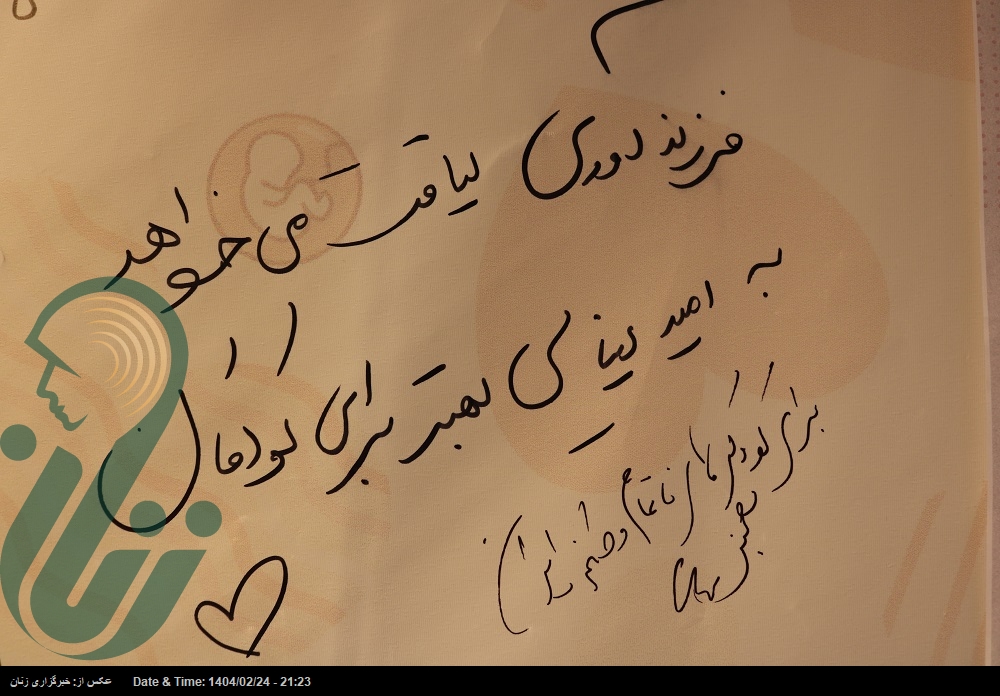 فرزند آوری لیاقت می خواهد
به امید دنیا ی بهتر برای کودکان
برای کودکی های ما
زنان
عکس از: خبرگزاری زنان Date & Time: 1404/02/24 - 21:23